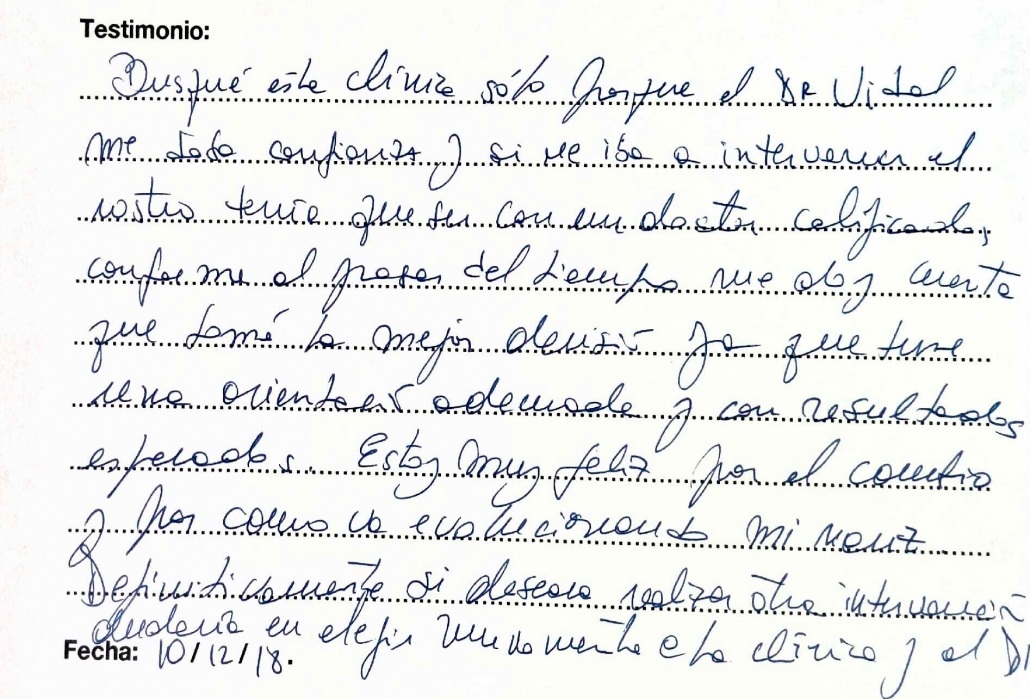 Testimonio:
Busqué esta clínica sólo porque el DR Vidal
me daba confianza y si me iba a intervenir el
rostro tenía que ser con un doctor calificado,
conforme al pasar del tiempo me doy cuenta
que tomé la mejor decisión ya que tuve
una orientación adecuada y con resultados
esperados. Estoy muy feliz por el cambio
y por como va evolucionando mi nariz.
Definitivamente si deseara realizar otra intervención
dudaría en elegir nuevamente esta clínica y al DR
Fecha: 10/12/18.